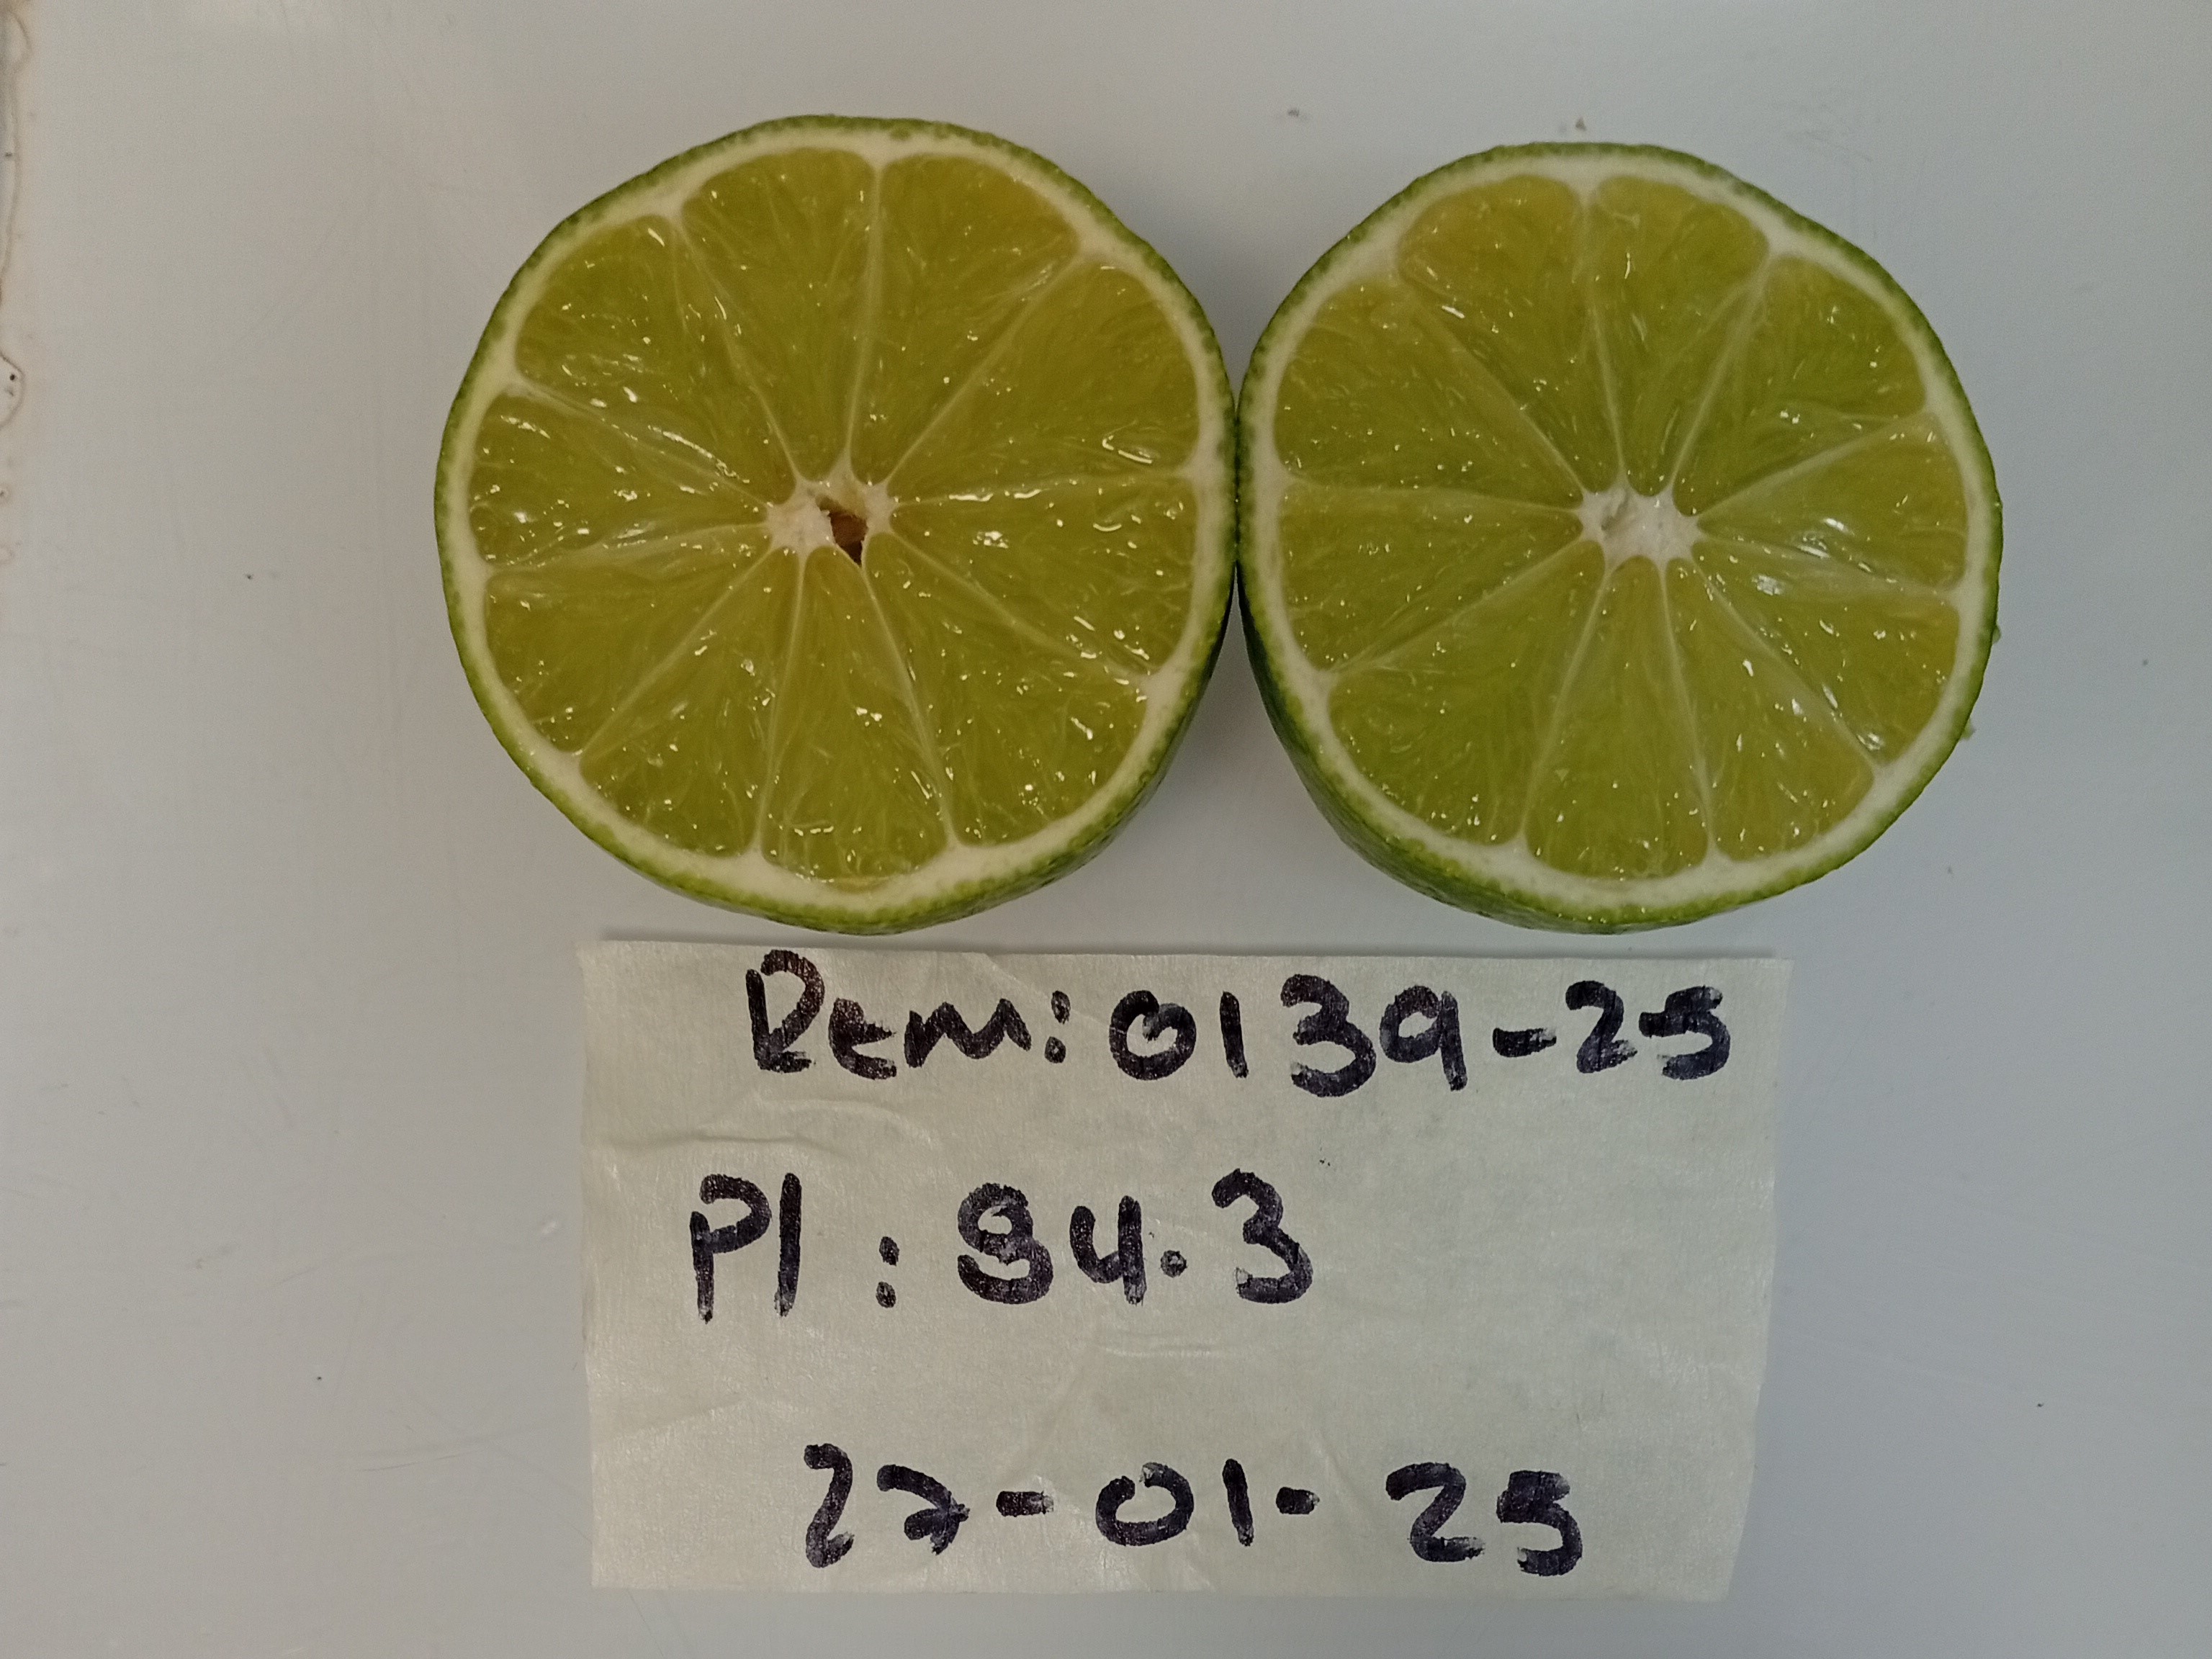 Rem: 0139-25
Pl : 94.3
27-01-25